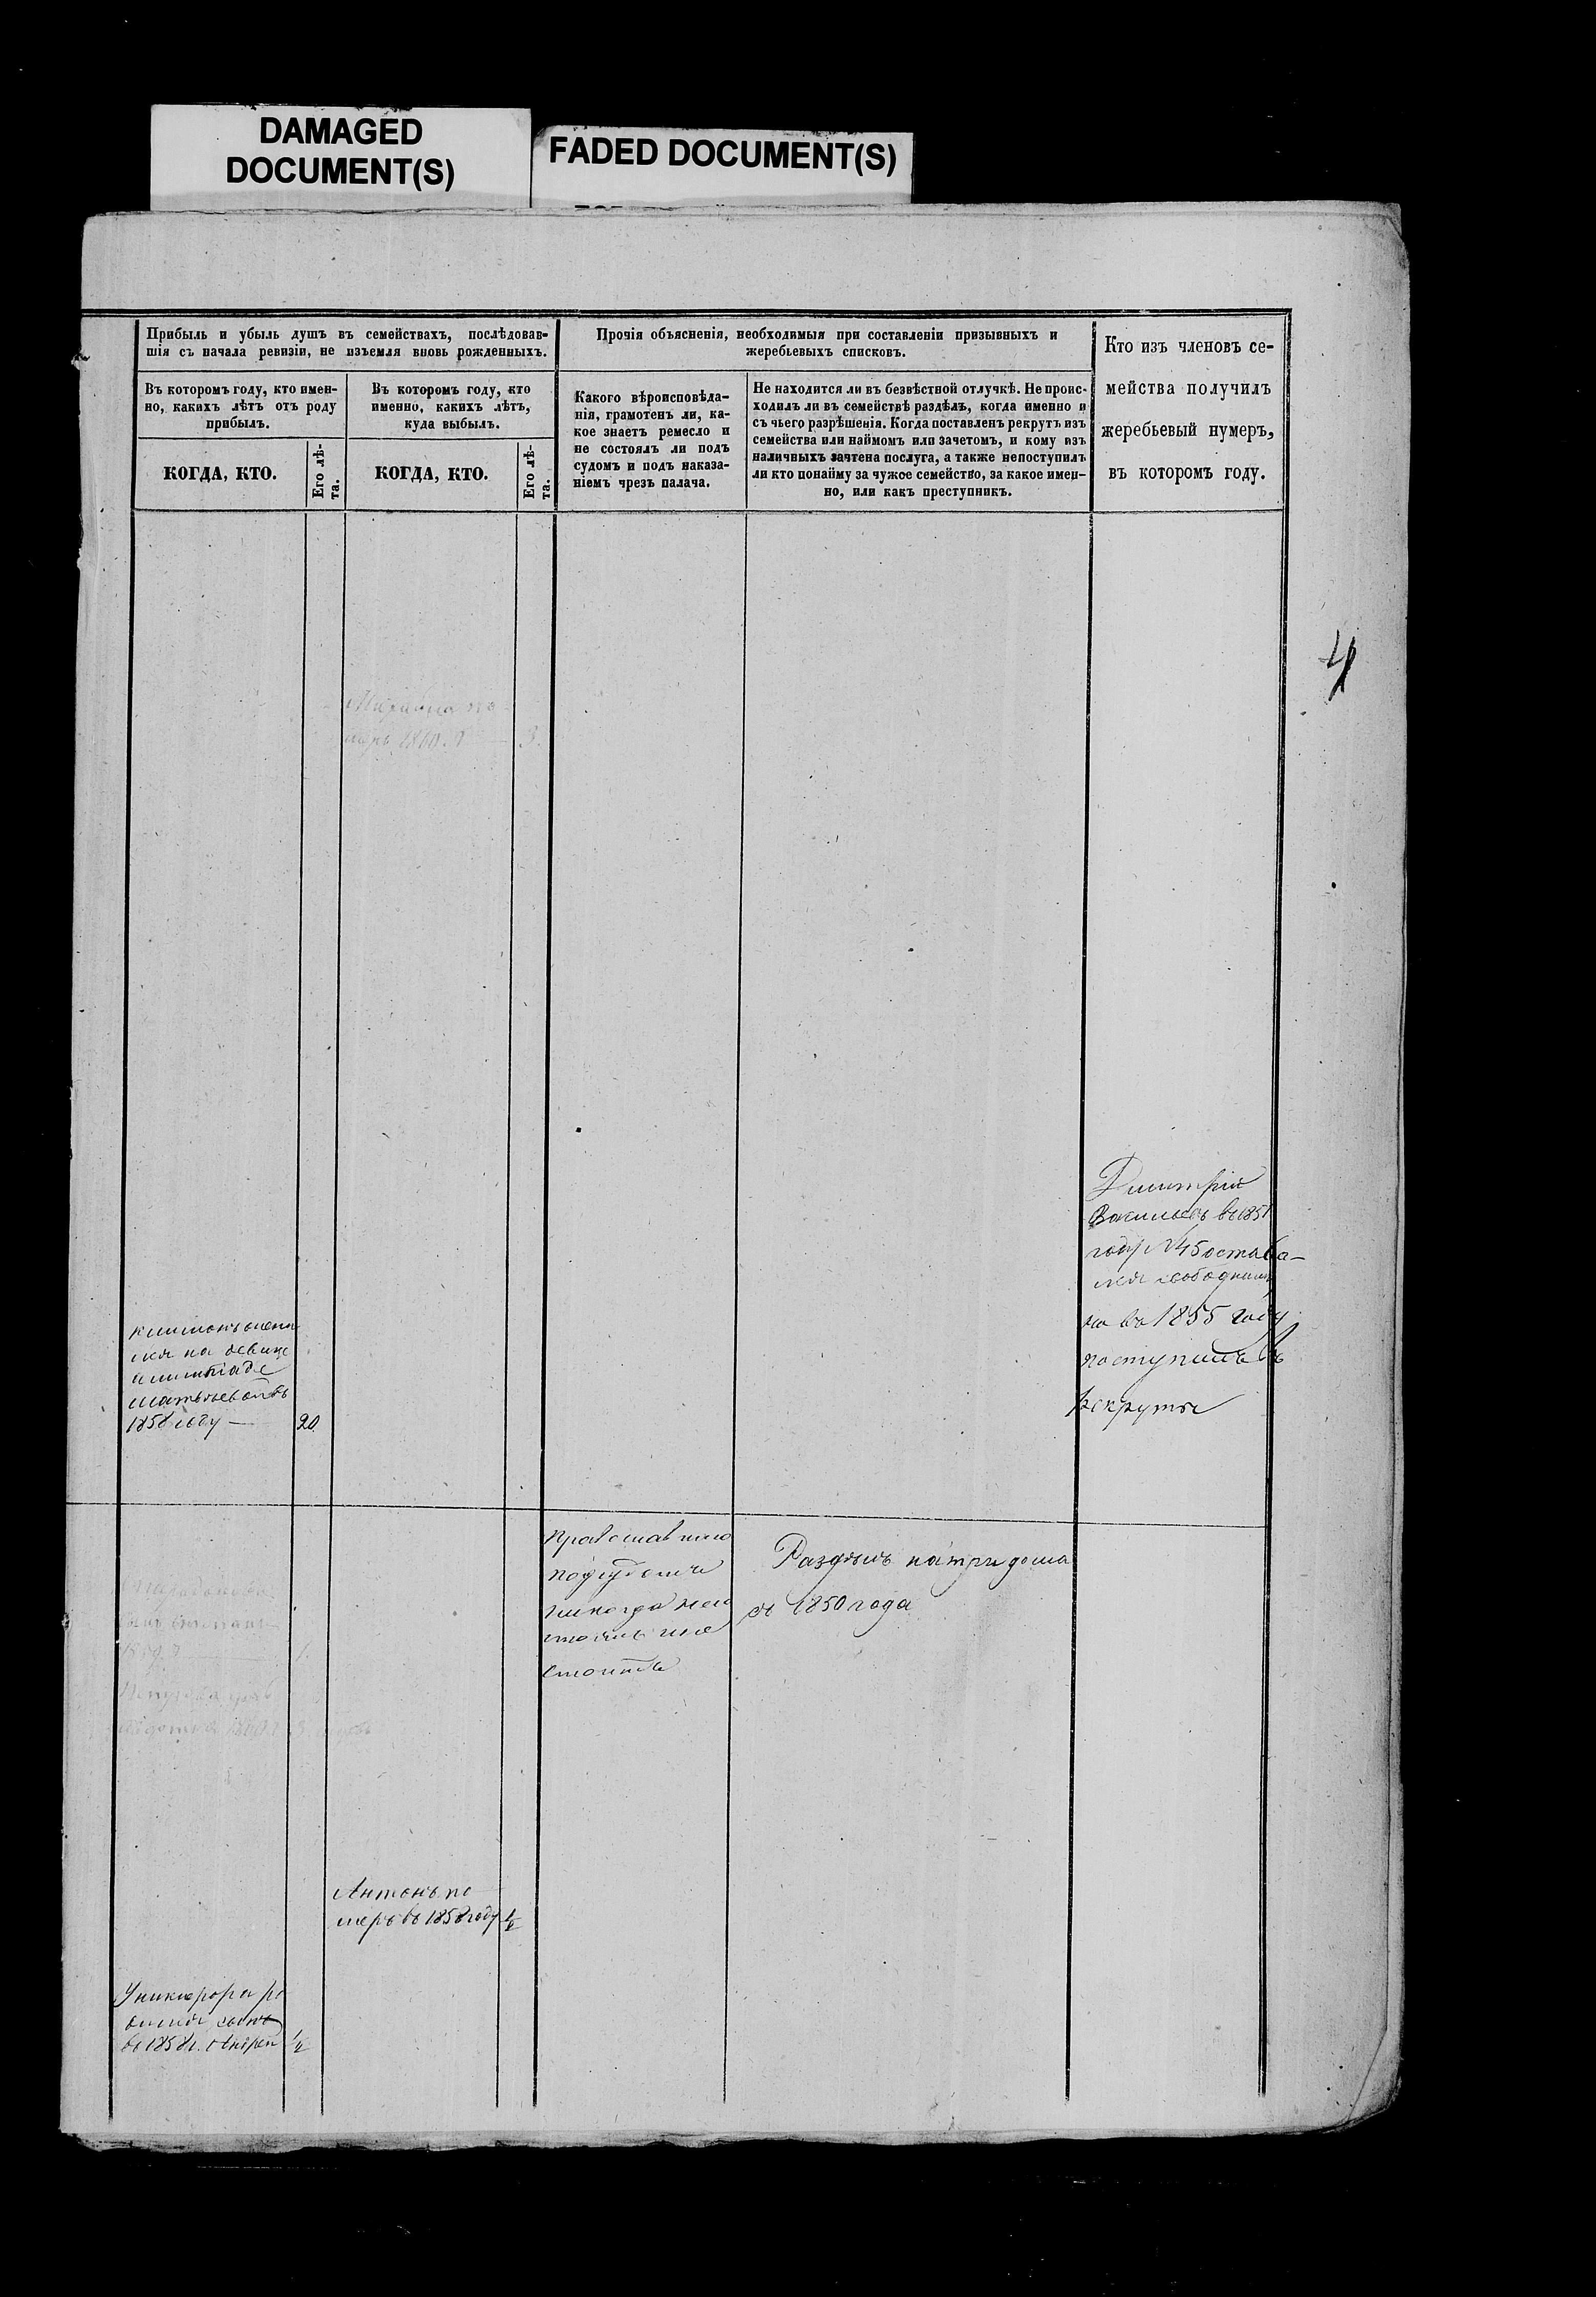 DAMAGED
DOCUMENT(S)
FADED DOCUMENT(S)
Прибыль и убыль душъ въ семействахъ, послѣдовав-
шія съ начала ревизіи, не изъемля вновь рожденныхъ.
Прочія объясненія, необходимыя при составленіи призывныхъ и
жеребьевыхъ списковъ.
Кто изъ членовъ се-
мейства получилъ
жеребьевый нумеръ,
въ которомъ году.
Въ которомъ году, кто имен-
но, какихъ лѣтъ отъ роду
прибылъ.
Въ которомъ году, кто
именно, какихъ лѣтъ,
куда выбылъ.
Какого вѣроисповѣда-
нія, грамотенъ ли, ка-
кое знаетъ ремесло и
не состоялъ ли подъ
судомъ и подъ наказа-
ніемъ чрезъ палача.
Не находится ли въ безвѣстной отлучкѣ. Не проис-
ходилъ ли въ семействѣ раздѣлъ, когда именно и
съ чьего разрѣшенія. Когда поставленъ рекрутъ изъ
семейства или наймомъ или зачетомъ, и кому изъ
наличныхъ зачтена послуга, а также непоступилъ
ли кто понайму за чужое семейство, за какое имен-
но, или какъ преступникъ.
КОГДА, КТО.
Его лѣ-
та.
КОГДА, КТО.
Его лѣ-
та.
4
по
меръ 1860. г 3.
Дмитрій
Васильевъ въ 1851
году №45 остава-
лся свободнымъ
но въ 1855 году
поступилъ въ
рекруты
на девице
Матвеевой въ
1858 году — 20
Православнаго
подсудомъ
никогда несо
стоялъ и не
стоитъ
Раздѣлъ на три дома
съ 1850 года
1860
Антонъ по
меръ въ 1858 году 1/2
У Никифора ро
дился сынъ
въ 1858 г. Андрей 1/2